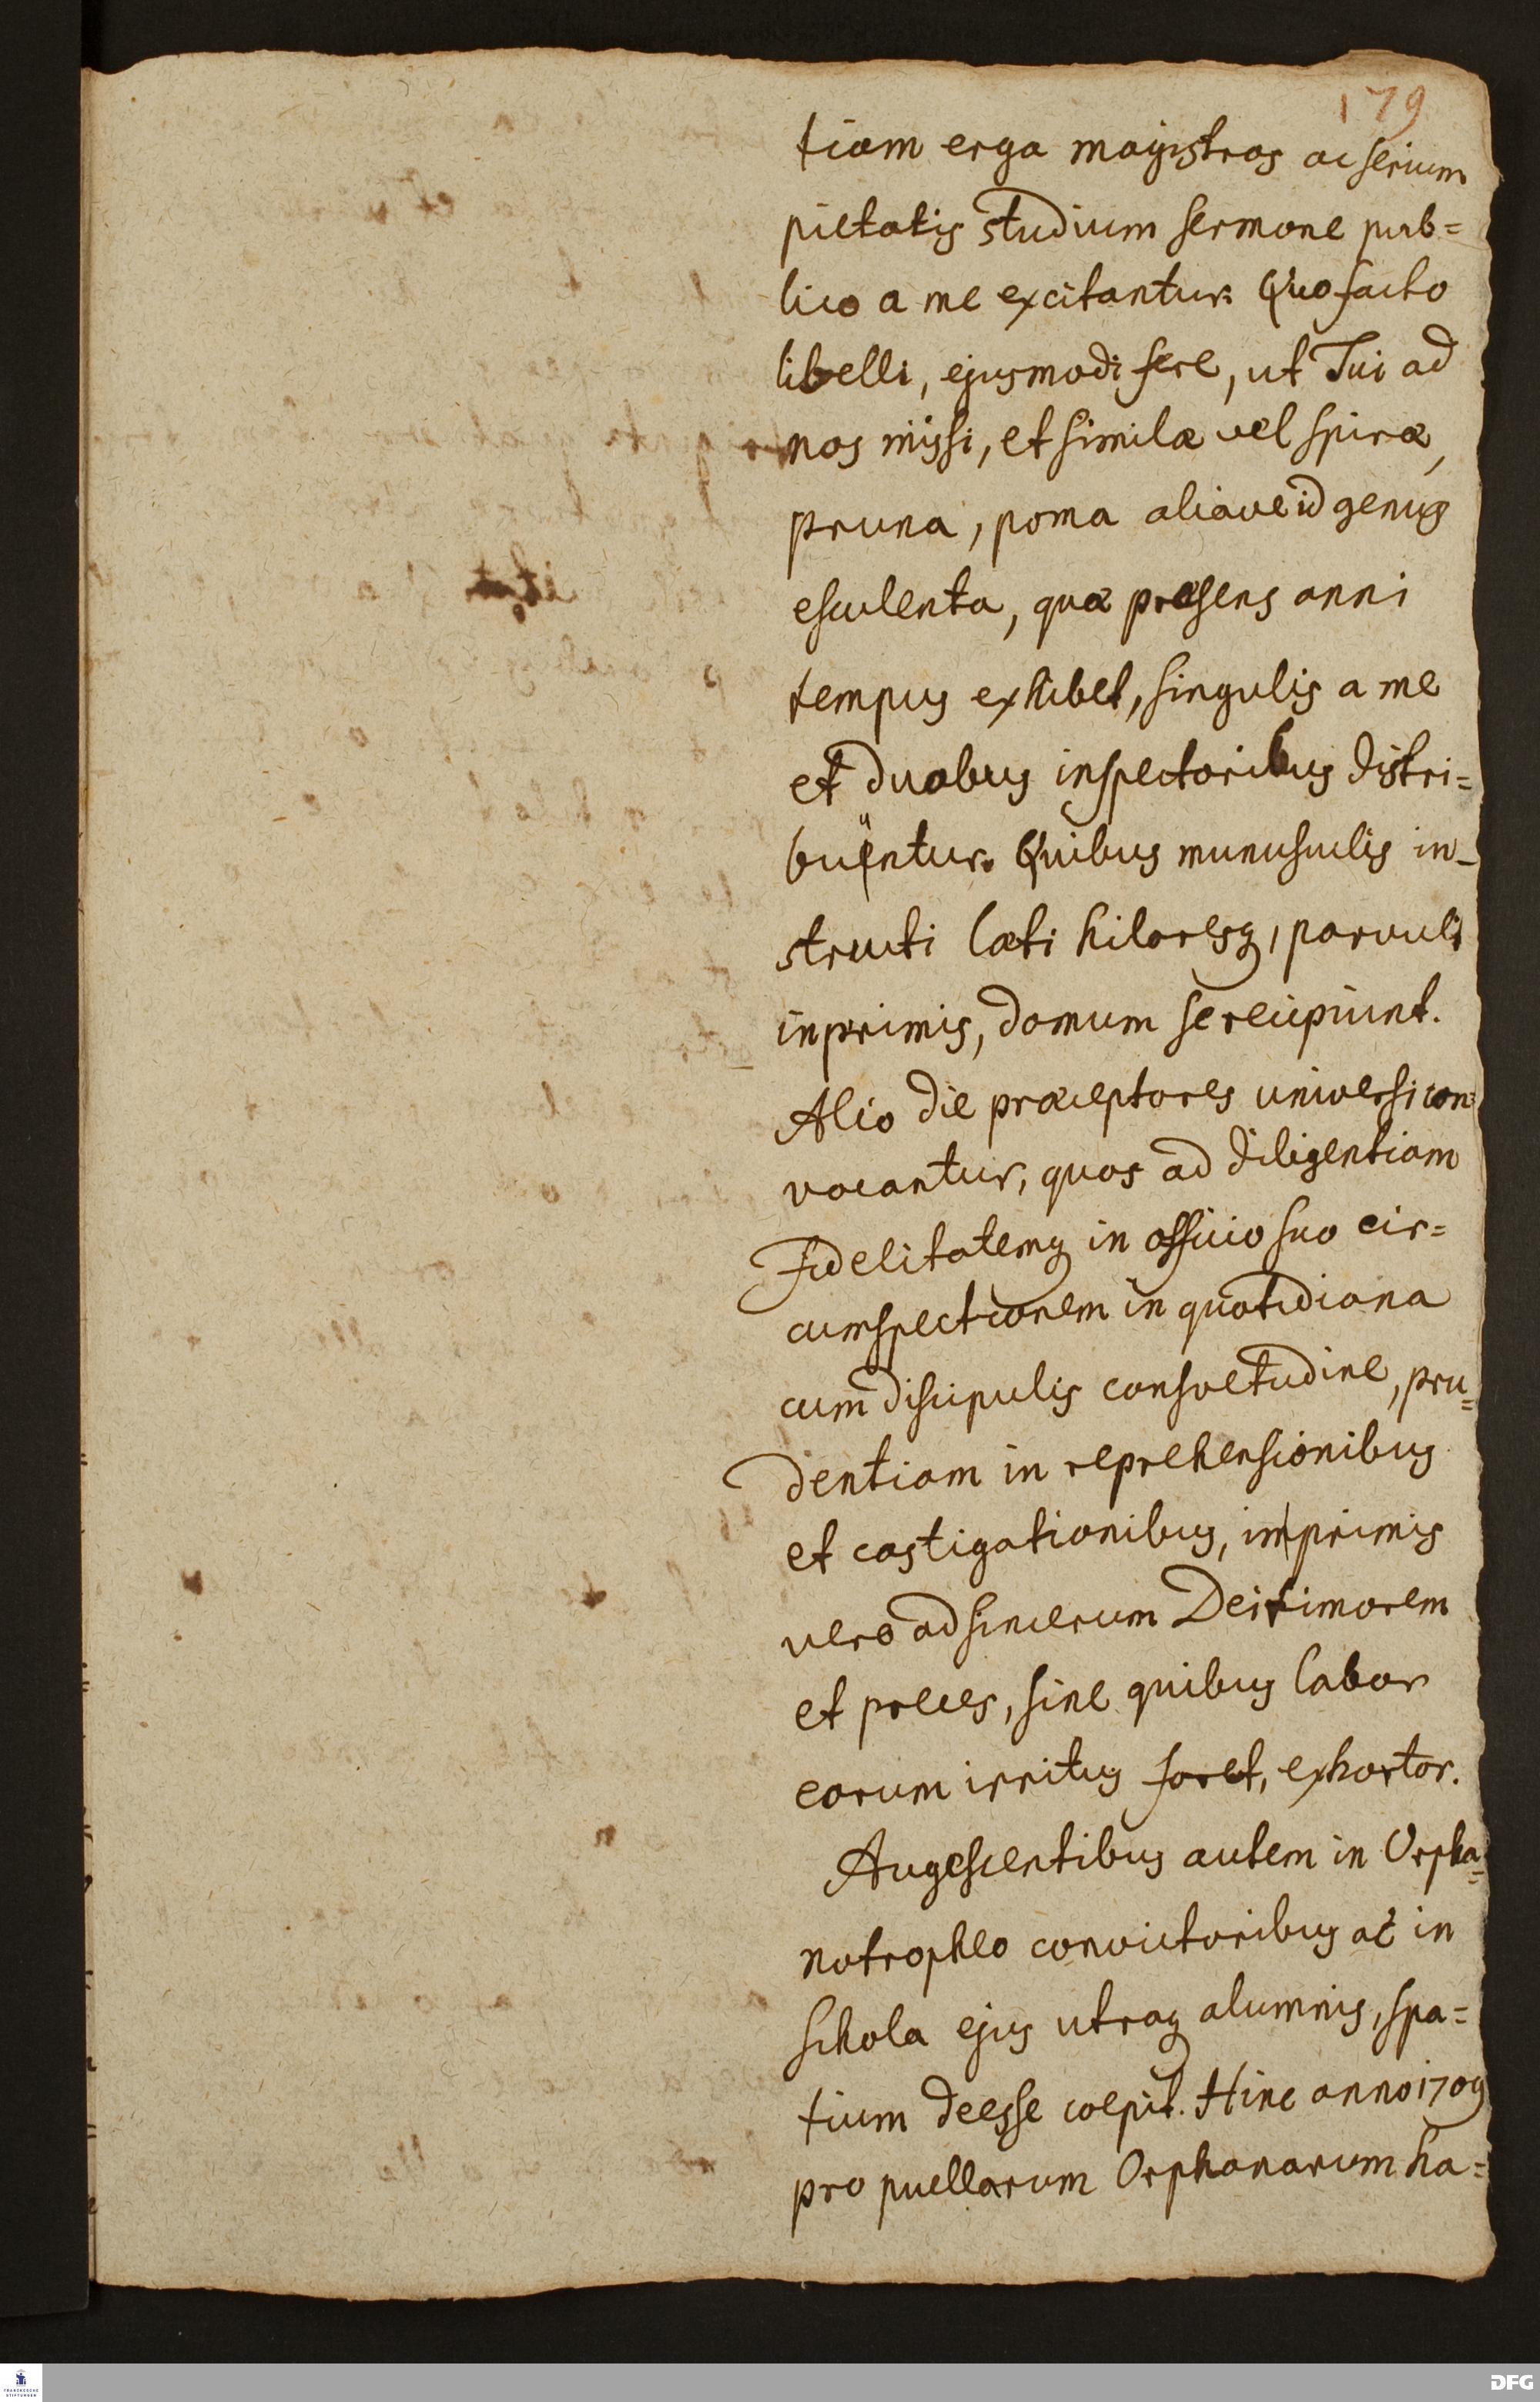 179
tiam erga magistros ac serium
pietatis studium sermone pub=
lico a me excitantur. Quo facto
libelli, ejusmodi fere, ut Tui ad
nos missi, et similæ vel spiræ,
pruna, poma aliave id genus
esculenta, quæ præsens anni
tempus exhibet, singulis a me
et duobus inspectoribus distri=
buuntur. Quibus munusculis in-
structi læti hilaresq, parvuli
inprimis, domum se recipiunt.
Alio die præceptores universi con=
vocantur, quos ad diligentiam
fidelitatemq in officio suo cir=
cumspectionem in quotidiana
cum discipulis consvetudine, pru=
dentiam in reprehensionibus
et castigationibus, inprimis
vero ad sincerum Dei timorem
et preces, sine quibus labor
eorum irritus foret, exhortor.
Augescentibus autem in Orpha=
notropheo convictoribus ac in
schola ejus utraq alumnis, spa=
tium deesse coepit. Hinc anno 1709
pro puellarum Orphanarum ha=
FRANCKESCHE
STIFTUNGEN
DFG